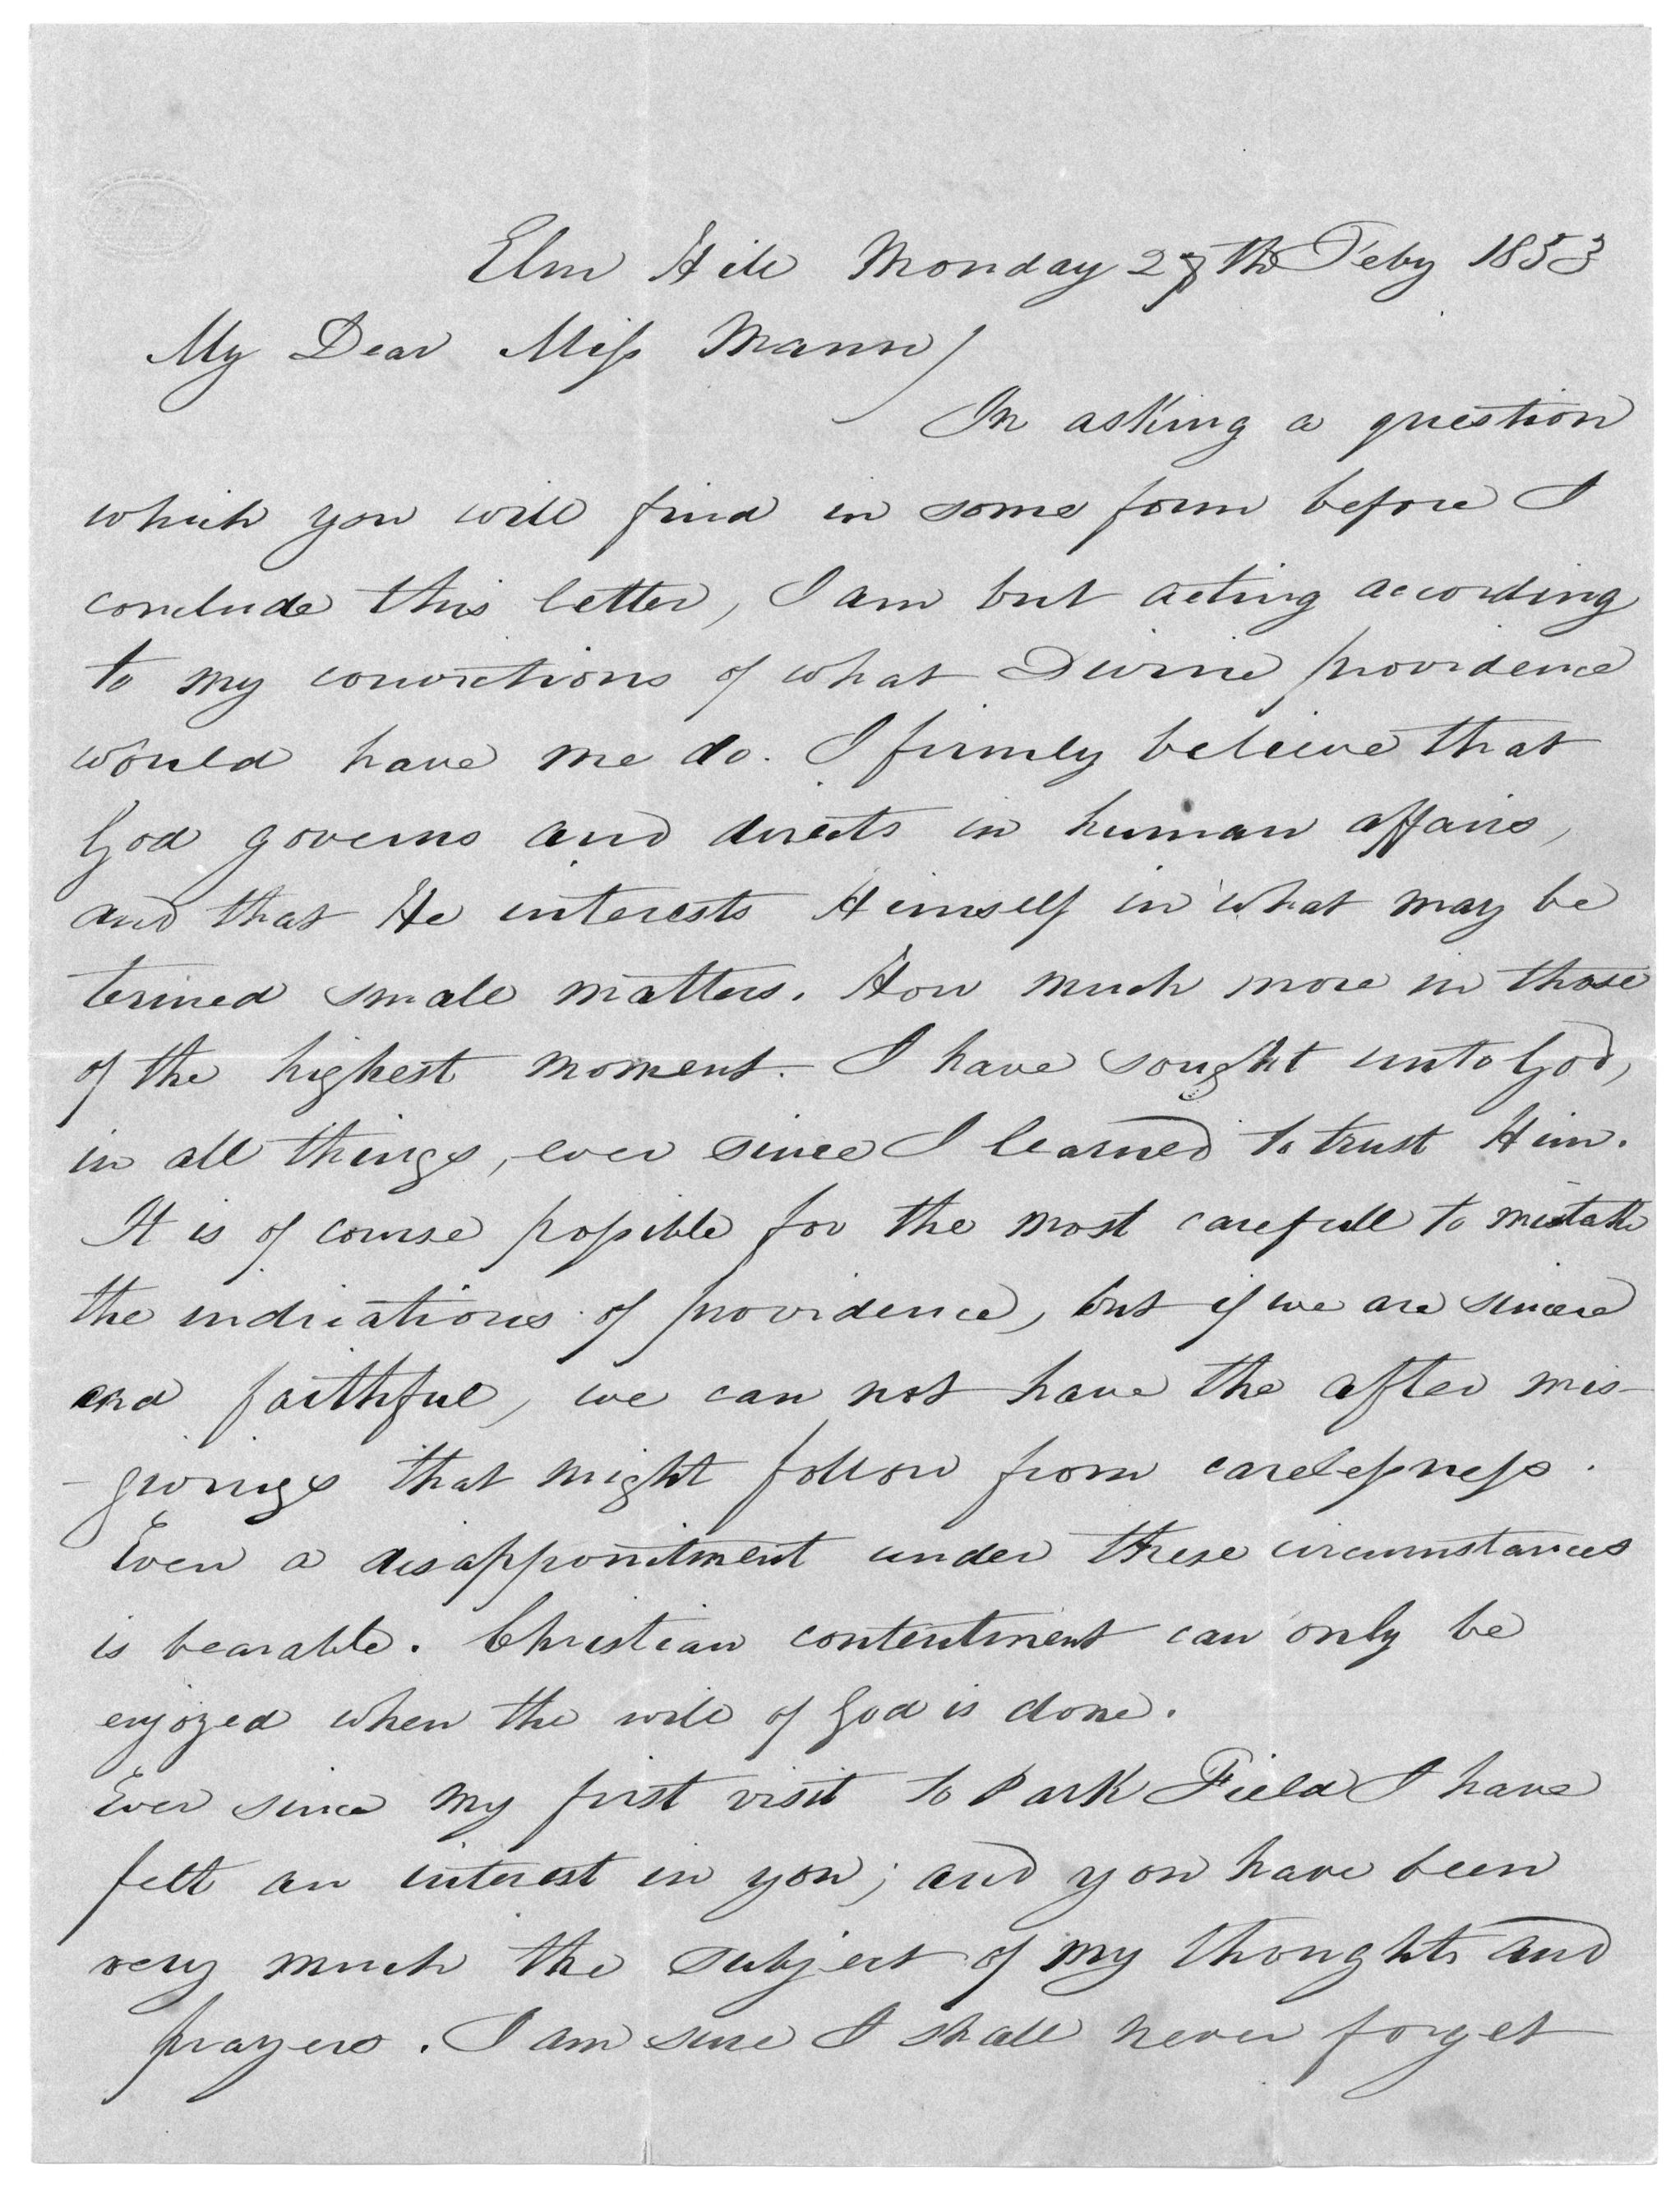 Elm Hill Monday 28th Feby 1853
My Dear Miss Mann/
In asking a question
which you will find in some form before I
conclude this letter, I am but acting according
to my convictions of what Divine providence
would have me do. I firmly believe that
God governs and directs in human affairs,
and that He interests Himself in what may be
termed small matters. How much more in those
of the highest moment. I have sought unto God,
in all things, ever since I learned to trust Him.
It is of course possible for the most carefull to mistake
the indications of providence, but if we are sincere
and faithful, we can not have the after mis-
-givings that might follow from carelessness.
Even a disappointment under these circumstances
is bearable. Christian contentment can only be
enjoyed when the will of God is done.
Ever since my first visit to Park Field I have
felt an interest in you; and you have been
very much the subject of my thoughts and
prayers. I am sure I shall never forget